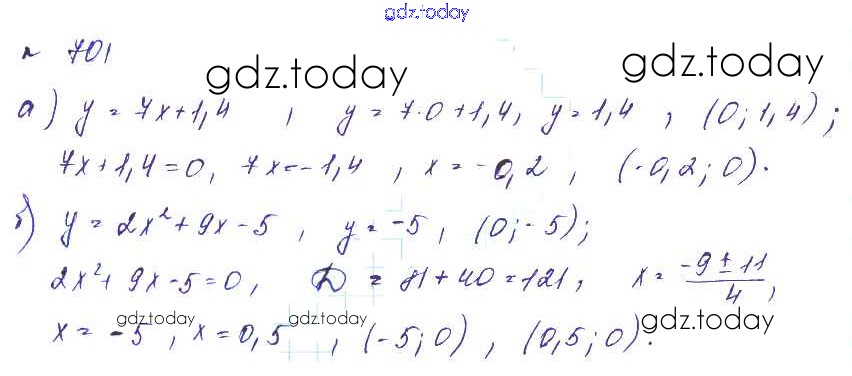 gdz.today
№ 701
gdz.today gdz.today
а) y = 7x+1,4 , y = 7·0+1,4, y = 1,4 , (0; 1,4);
7x+1,4=0, 7x=-1,4 , x = -0,2 , (-0,2; 0).
б) y = 2x²+9x-5 , y = -5 , (0; -5);
2x²+ 9x-5=0, D = 81+40=121, x = (-9 ± 11)/4,
gdz.today gdz.today gdz.today
x = -5 , x = 0,5 , (-5; 0) , (0,5; 0).